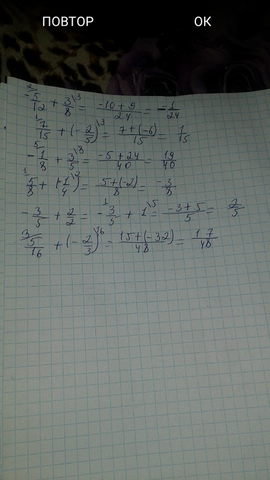 ПОВТОР ОК
-5/12 + 3/8 \3 = -10+9/24 = -1/24
7/15 + (-2/5) \3 = 7+(-6)/15 = 1/15
-1/8 + 3/5 \8 = -5+24/40 = 19/40
5/8 + (-1/4) \2 = 5+(-2)/8 = 3/8
-3/5 + 2/2 = -3/5 + 1 \5 = -3+5/5 = 2/5
3/ 5/16 + (-2/3) \16 = 15+(-32)/48 = 17/48